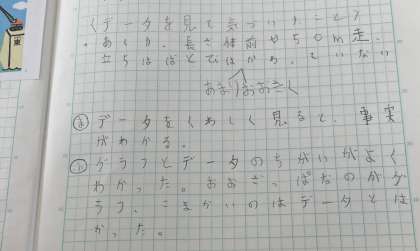 〈データを見て気づいたこと〉
・あくりょく、長ざ体前、50m走、
立ちはばとびはかわっていない
あまりおおきく
㋮データをくわしく見ると、事実
がわかる。
㋷グラフとデータのちがいがよく
わかった。おおざっぱなのがグ
ラフ、こまかいのはデータとわ
かった。
東